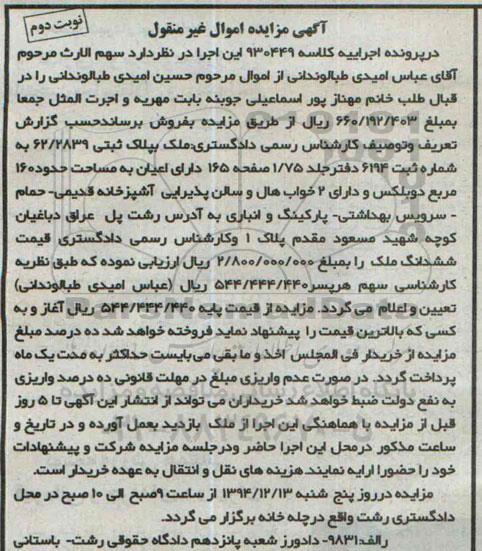 آگهی مزایده اموال غیر منقول
نوبت دوم
درپرونده اجراییه کلاسه ۹۳۰۴۴۹ این اجرا در نظردارد سهم الارث مرحوم
آقای عباس امیدی طبالوندانی از اموال مرحوم حسین امیدی طبالوندانی را در
قبال طلب خانم مهناز پور اسماعیلی جوبنه بابت مهریه و اجرت المثل جمعا
بمبلغ ۶۶۰/۱۹۲/۴۰۳ ریال از طریق مزایده بفروش برساندحسب گزارش
تعریف وتوصیف کارشناس رسمی دادگستری:ملک بپلاک ثبتی ۶۲/۲۸۳۹ به
شماره ثبت ۶۱۹۳ دفترجلد ۱/۷۵ صفحه ۱۶۵ دارای اعیان به مساحت حدود۱۶۰
مربع دوبلکس و دارای ۲ خواب هال و سالن پذیرایی آشپزخانه قدیمی- حمام
- سرویس بهداشتی- پارکینگ و انباری به آدرس رشت پل عراق دباغیان
کوچه شهید مسعود مقدم پلاک ۱ وکارشناس رسمی دادگستری قیمت
ششدانگ ملک را بمبلغ ۲/۸۰۰/۰۰۰/۰۰۰ ریال ارزیابی نموده که طبق نظریه
کارشناسی سهم هرپسر۵۴۴/۴۴۴/۴۴۰ ریال (عباس امیدی طبالوندانی)
تعیین و اعلام می گردد. مزایده از قیمت پایه ۵۴۴/۴۴۴/۴۴۰ ریال آغاز و به
کسی که بالاترین قیمت را پیشنهاد نماید فروخته خواهد شد ده درصد مبلغ
مزایده از خریدار فی المجلس اخذ و ما بقی می بایست حداکثر به مدت یک ماه
پرداخت گردد. در صورت عدم واریزی مبلغ در مهلت قانونی ده درصد واریزی
به نفع دولت ضبط خواهد شد خریداران می تواند از انتشار این آگهی تا ۵ روز
قبل از مزایده با هماهنگی این اجرا از ملک بازدید بعمل آورده و در تاریخ و
ساعت مذکور درمحل این اجرا حاضر ودرجلسه مزایده شرکت و پیشنهادات
خود را حضورا ارایه نمایند.هزینه های نقل و انتقال به عهده خریدار است.
مزایده درروز پنج شنبه ۱۳۹۴/۱۲/۱۳ از ساعت ۹صبح الی ۱۰ صبح در محل
دادگستری رشت واقع درچله خانه برگزار می گردد.
رالف:۹۸۳۱- دادورز شعبه پانزدهم دادگاه حقوقی رشت- باستانی